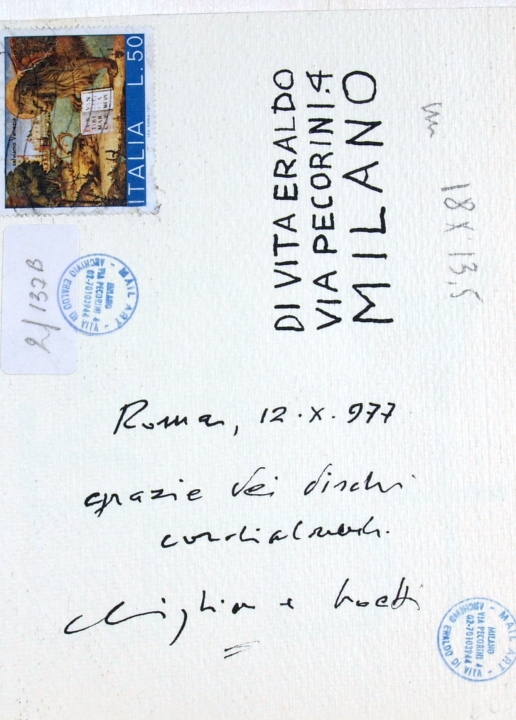 ITALIA L.50
DI VITA ERALDO
VIA PECORINI.4
MILANO
18 x 13,5
2/137B
MAIL ART
ARCHIVIO ERALDO DI VITA
MILANO
VIA PECORINI 4
02-70103944
Roma, 12.X.977
grazie dei dischi
cordialmente.
MAIL ART
ARCHIVIO ERALDO DI VITA
MILANO
VIA PECORINI 4
02-70103944